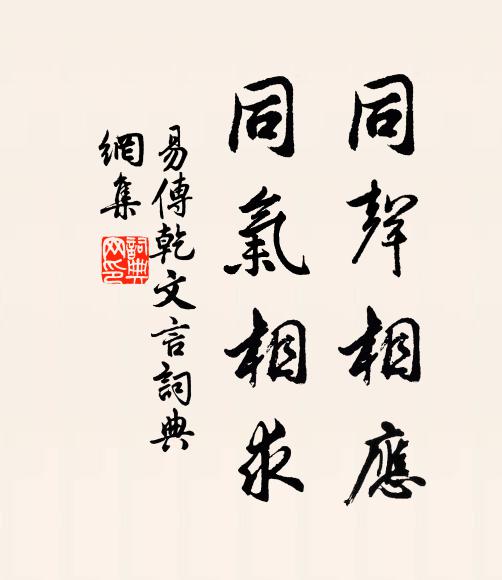 同聲相應
同氣相求
易傳乾文言詞典
網集
詞典
网印